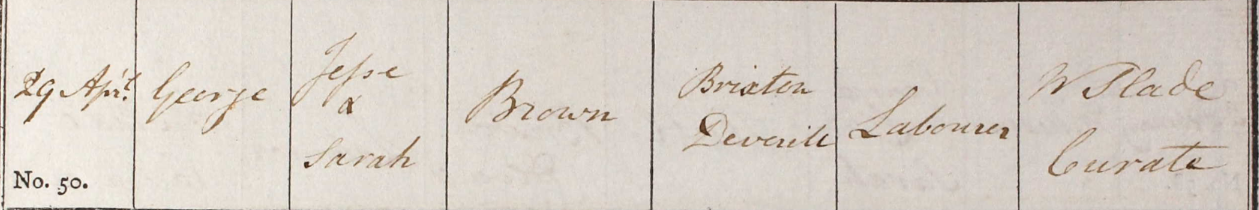 29 Apr.l
George
Jesse
&
Sarah
Brown
Brixton
Deverill
Labourer
W Slade
Curate
No. 50.